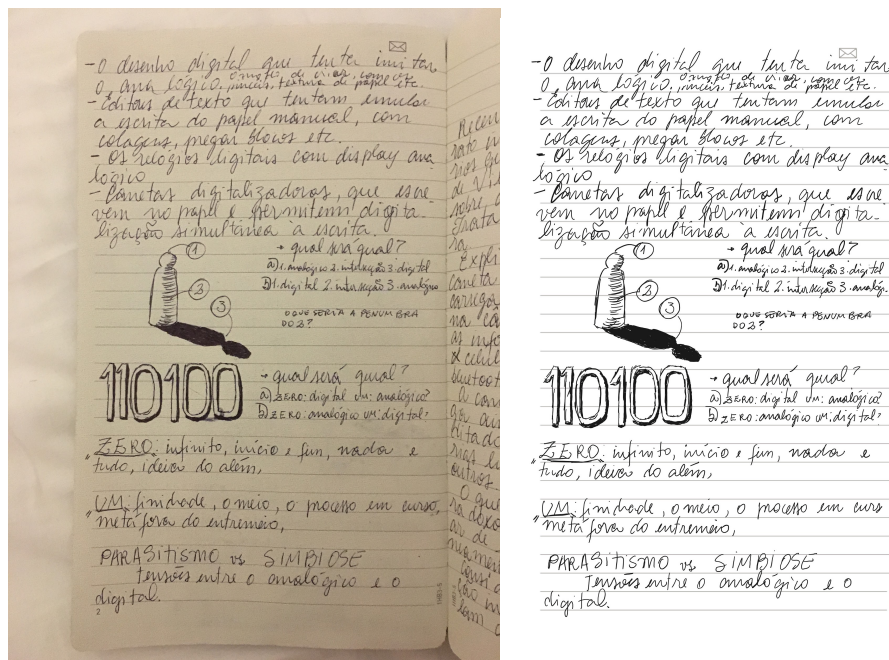 - O desenho digital que tenta imitar
o analógico. O mato, de virar, com cores
pinceis, textura de papel etc.
- Editores de texto que tentam emular
a escrita do papel manual, com
colagens, pregar blocos etc.
- Os relógios digitais com display ana
lógico
- Canetas digitalizadoras, que escre
vem no papel e permitem digita-
lização simultânea à escrita.
1
→ qual será qual?
a) 1. analógico 2. intersecção 3. digital
b) 1. digital 2. intersecção 3. analógico
2
3
O QUE SERIA A PENUMBRA
DO 3?
110100
→ qual será qual?
a) ZERO: digital UM: analógico?
b) ZERO: analógico UM: digital?
" ZERO: infinito, início e fim, nada e
tudo, ideia do além,
" UM: finidade, o meio, o processo em curso,
metáfora do entremeio,
PARASITISMO vs SIMBIOSE
Tensões entre o analógico e o
digital.
2
Recen
de
sobre
trata
Expli
caneta
carrega
na
as info
bluetoo
outros
O que
- O desenho digital que tenta imitar
o analógico.
pinceis, textura de papel etc.
- Editores de texto que tentam emular
a escrita do papel manual, com
colagens, pregar blocos etc.
- Os relógios digitais com display ana
lógico
- Canetas digitalizadoras, que escre
vem no papel e permitem digita-
lização simultânea à escrita.
1
→ qual será qual?
a) 1. analógico 2. intersecção 3. digital
b) 1. digital 2. intersecção 3. analógi.
2
3
O QUE SERIA A PENUMBRA
DO 3?
110100
→ qual será qual?
a) ZERO: digital UM: analógico?
b) ZERO: analógico UM: digital?
" ZERO: infinito, início e fim, nada e
tudo, ideia do além,
" UM: finidade, o meio, o processo em curs
metáfora do entremeio,
PARASITISMO vs SIMBIOSE
Tensões entre o analógico e o
digital.